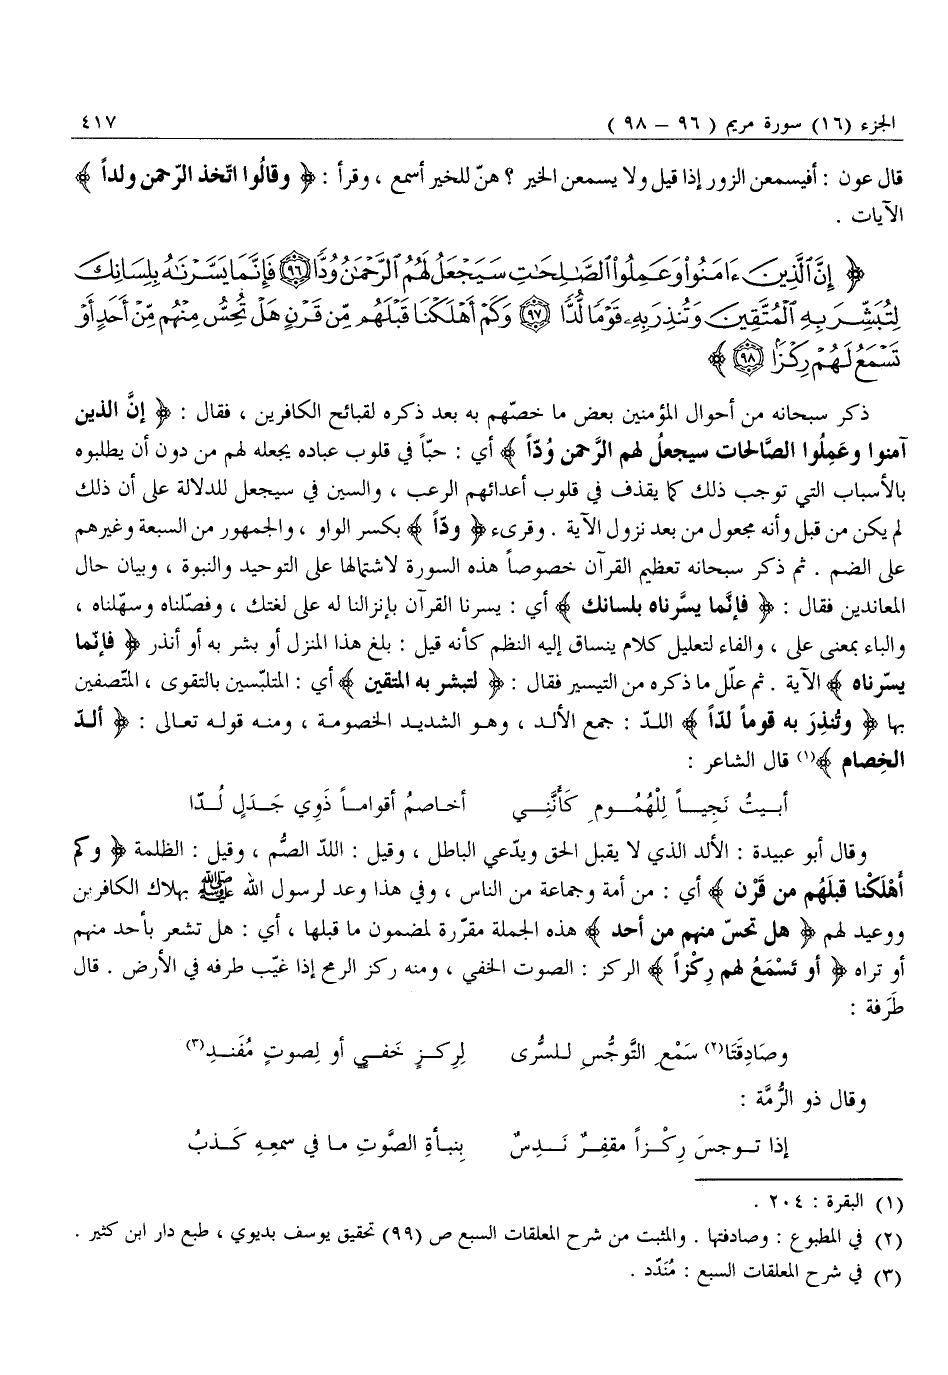 الجزء (١٦) سورة مريم ( ٩٦ – ٩٨ )
٤١٧
قال عون : أفيسمعن الزور إذا قيل ولا يسمعن الخير ؟ هنّ للخير أسمع ، وقرأ : ﴿ وقالُوا اتّخذ الرّحمن ولداً ﴾
الآيات .
﴿ إِنَّ ٱلَّذِينَ ءَامَنُوا۟ وَعَمِلُوا۟ ٱلصَّٰلِحَٰتِ سَيَجْعَلُ لَهُمُ ٱلرَّحْمَٰنُ وُدًّا ٩٦ فَإِنَّمَا يَسَّرْنَٰهُ بِلِسَانِكَ
لِتُبَشِّرَ بِهِ ٱلْمُتَّقِينَ وَتُنذِرَ بِهِۦ قَوْمًا لُّدًّا ٩٧ وَكَمْ أَهْلَكْنَا قَبْلَهُم مِّن قَرْنٍ هَلْ تُحِسُّ مِنْهُم مِّنْ أَحَدٍ أَوْ
تَسْمَعُ لَهُمْ رِكْزًا ٩٨ ﴾
ذكر سبحانه من أحوال المؤمنين بعض ما خصّهم به بعد ذكره لقبائح الكافرين ، فقال : ﴿ إنَّ الذين
آمنوا وعَمِلُوا الصَّالحات سيجعلُ لهم الرَّحمن وُدّاً ﴾ أي : حبّاً في قلوب عباده يجعله لهم من دون أن يطلبوه
بالأسباب التي توجب ذلك كما يقذف في قلوب أعدائهم الرعب ، والسين في سيجعل للدلالة على أن ذلك
لم يكن من قبل وأنه مجعول من بعد نزول الآية . وقرىء ﴿ ودّاً ﴾ بكسر الواو ، والجمهور من السبعة وغيرهم
على الضم . ثم ذكر سبحانه تعظيم القرآن خصوصاً هذه السورة لاشتمالها على التوحيد والنبوة ، وبيان حال
المعاندين فقال : ﴿ فإنَّما يسَّرناه بلسانك ﴾ أي : يسرنا القرآن بإنزالنا له على لغتك ، وفصّلناه وسهّلناه ،
والباء بمعنى على ، والفاء لتعليل كلام ينساق إليه النظم كأنه قيل : بلغ هذا المنزل أو بشر به أو أنذر ﴿ فإنّما
يسّرناه ﴾ الآية . ثم علّل ما ذكره من التيسير فقال : ﴿ لتبشر به المتقين ﴾ أي : المتلبّسين بالتقوى ، المتّصفين
بها ﴿ وتُنذِرَ به قوماً لدّاً ﴾ اللدّ : جمع الألد ، وهو الشديد الخصومة ، ومنه قوله تعالى : ﴿ ألدّ
الخِصام ﴾(١) قال الشاعر :
أبيتُ نَجِياً لِلْهُمُومِ كَأَنَّنِي أخاصمُ أقواماً ذَوِي جَدَلٍ لُدّا
وقال أبو عبيدة : الألد الذي لا يقبل الحق ويدّعي الباطل ، وقيل : اللدّ الصُّم ، وقيل : الظلمة ﴿ وكم
أَهْلَكْنا قبلَهُم من قَرْن ﴾ أي : من أمة وجماعة من الناس ، وفي هذا وعد لرسول الله ﷺ بهلاك الكافرين
ووعيد لهم ﴿ هل تحسّ منهم من أحد ﴾ هذه الجملة مقرّرة لمضمون ما قبلها ، أي : هل تشعر بأحد منهم
أو تراه ﴿ أو تَسْمَعُ لهم رِكْزاً ﴾ الركز : الصوت الخفي ، ومنه ركز الرمح إذا غيّب طرفه في الأرض . قال
طَرَفة :
وصَادِقَتَا(٢) سَمْعِ التَّوجُّسِ للسُّرى لِرِكزٍ خَفيٍ أو لِصوتٍ مُفَندِ(٣)
وقال ذو الرُّمَّة :
إذا توجسَ رِكْزاً مقفِرٌ نَدِسٌ بنبأةِ الصَّوتِ ما في سمعِهِ كَذبُ
(١) البقرة : ٢٠٤ .
(٢) في المطبوع : وصادفتها . والمثبت من شرح المعلقات السبع ص (٩٩) تحقيق يوسف بديوي ، طبع دار ابن كثير .
(٣) في شرح المعلقات السبع : مُنَدّد .